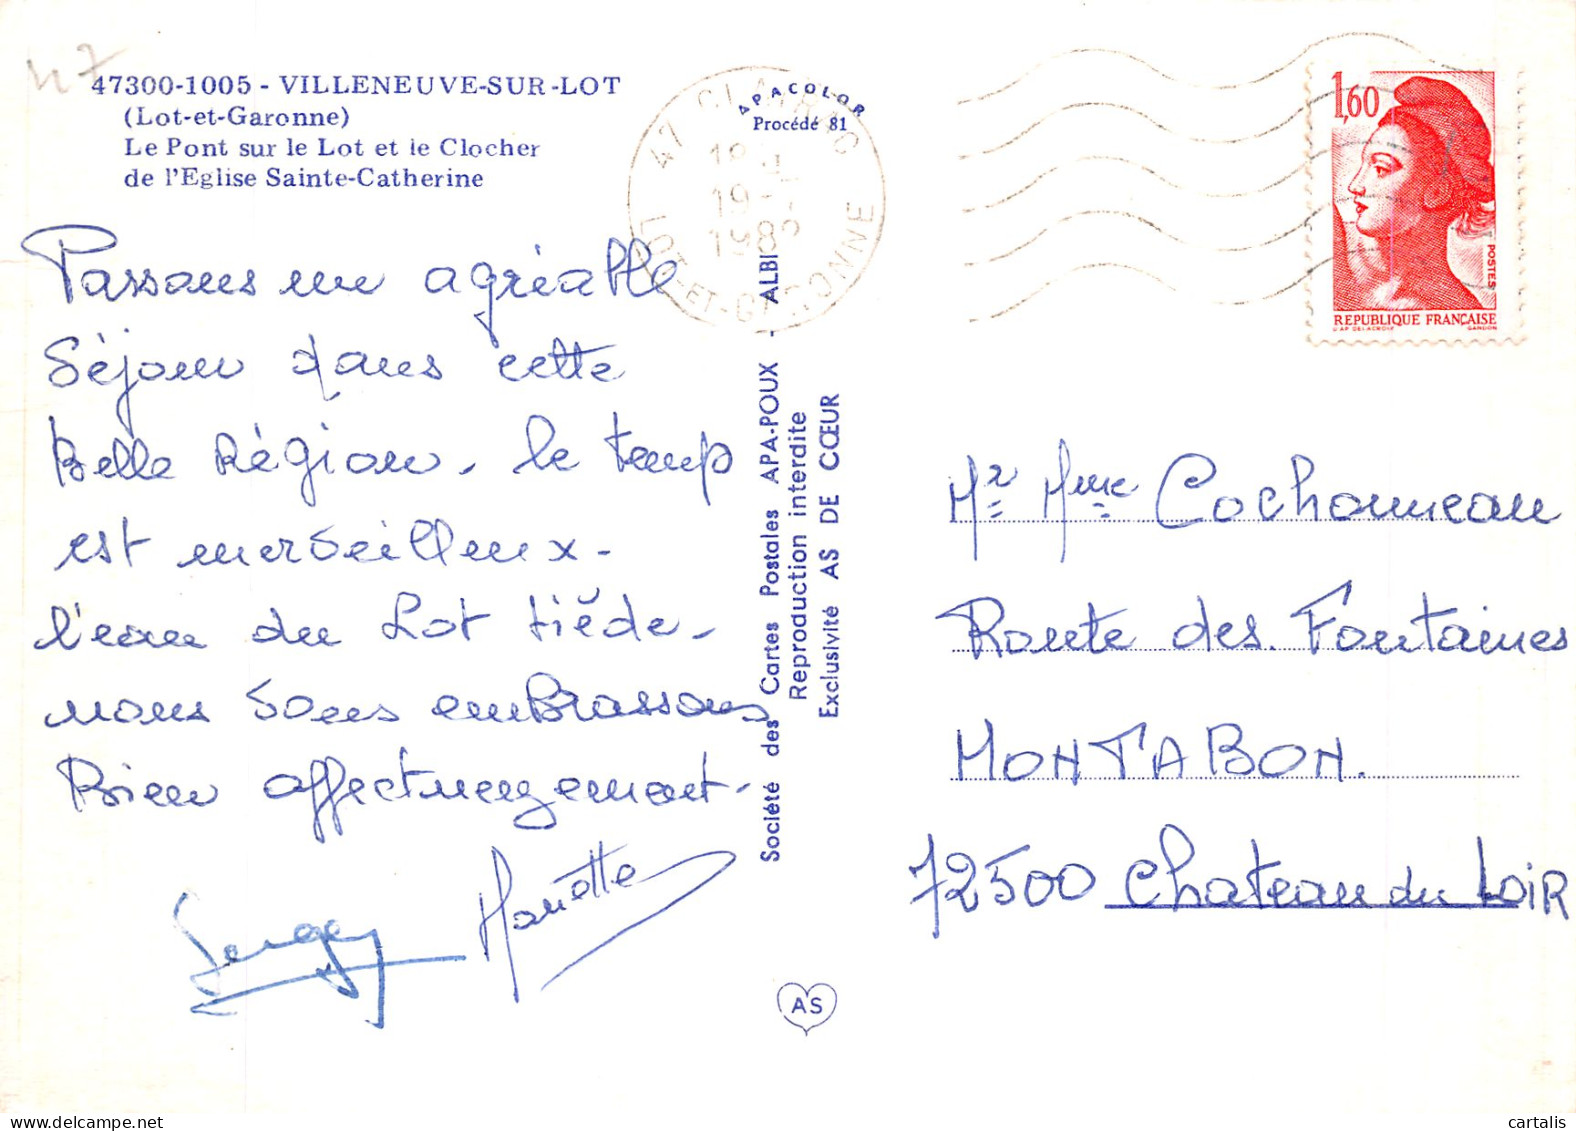 47
47300-1005 - VILLENEUVE-SUR-LOT
(Lot-et-Garonne)
Le Pont sur le Lot et le Clocher
de l'Eglise Sainte-Catherine
APACOLOR
Procédé 81
47
LOT-ET-GARONNE
1,60
POSTES
REPUBLIQUE FRANÇAISE
D'AP DELACROIX GANDON
Passons un agréable
Séjour dans cette
Belle Région. le temps
est merveilleux.
l'eau du Lot tiède.
nous vous embrassons
Bien affectueusement.
Serge Mariette
Société des Cartes Postales APA-POUX - ALBI
Reproduction interdite
Exclusivité AS DE CŒUR
AS
Mr Mme Cochonneau
Route des Fontaines
MONTABON.
72500 Chateau du LOIR
cartalis